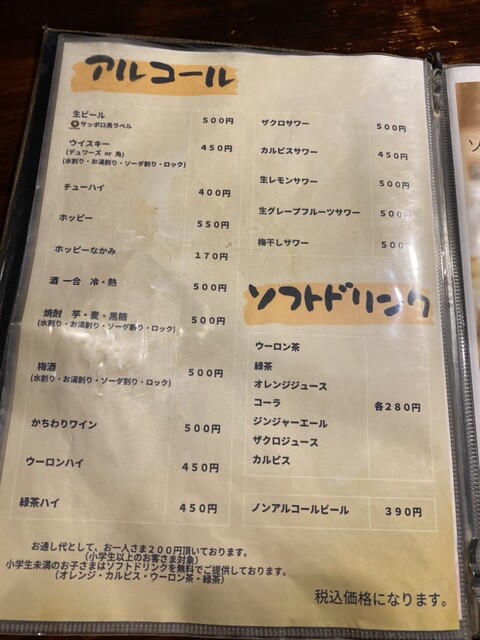 アルコール
生ビール 500円
サッポロ黒ラベル
ウイスキー 450円
(デュワーズ or 角)
(水割り・お湯割り・ソーダ割り・ロック)
チューハイ 400円
ホッピー 550円
ホッピーなかみ 170円
酒 一合 冷・熱 500円
焼酎 芋・麦・黒糖 500円
(水割り・お湯割り・ソーダ割り・ロック)
梅酒 500円
(水割り・お湯割り・ソーダ割り・ロック)
かちわりワイン 500円
ウーロンハイ 450円
緑茶ハイ 450円
ザクロサワー 500円
カルピスサワー 450円
生レモンサワー 500円
生グレープフルーツサワー 500円
梅干しサワー 500円
ソフトドリンク
ウーロン茶
緑茶
オレンジジュース
コーラ 各280円
ジンジャーエール
ザクロジュース
カルピス
ノンアルコールビール 390円
お通し代として、お一人さま200円頂いております。
(小学生以上のお客さま対象)
小学生未満のお子さまはソフトドリンクを無料でご提供しております。
(オレンジ・カルピス・ウーロン茶・緑茶)
税込価格になります。